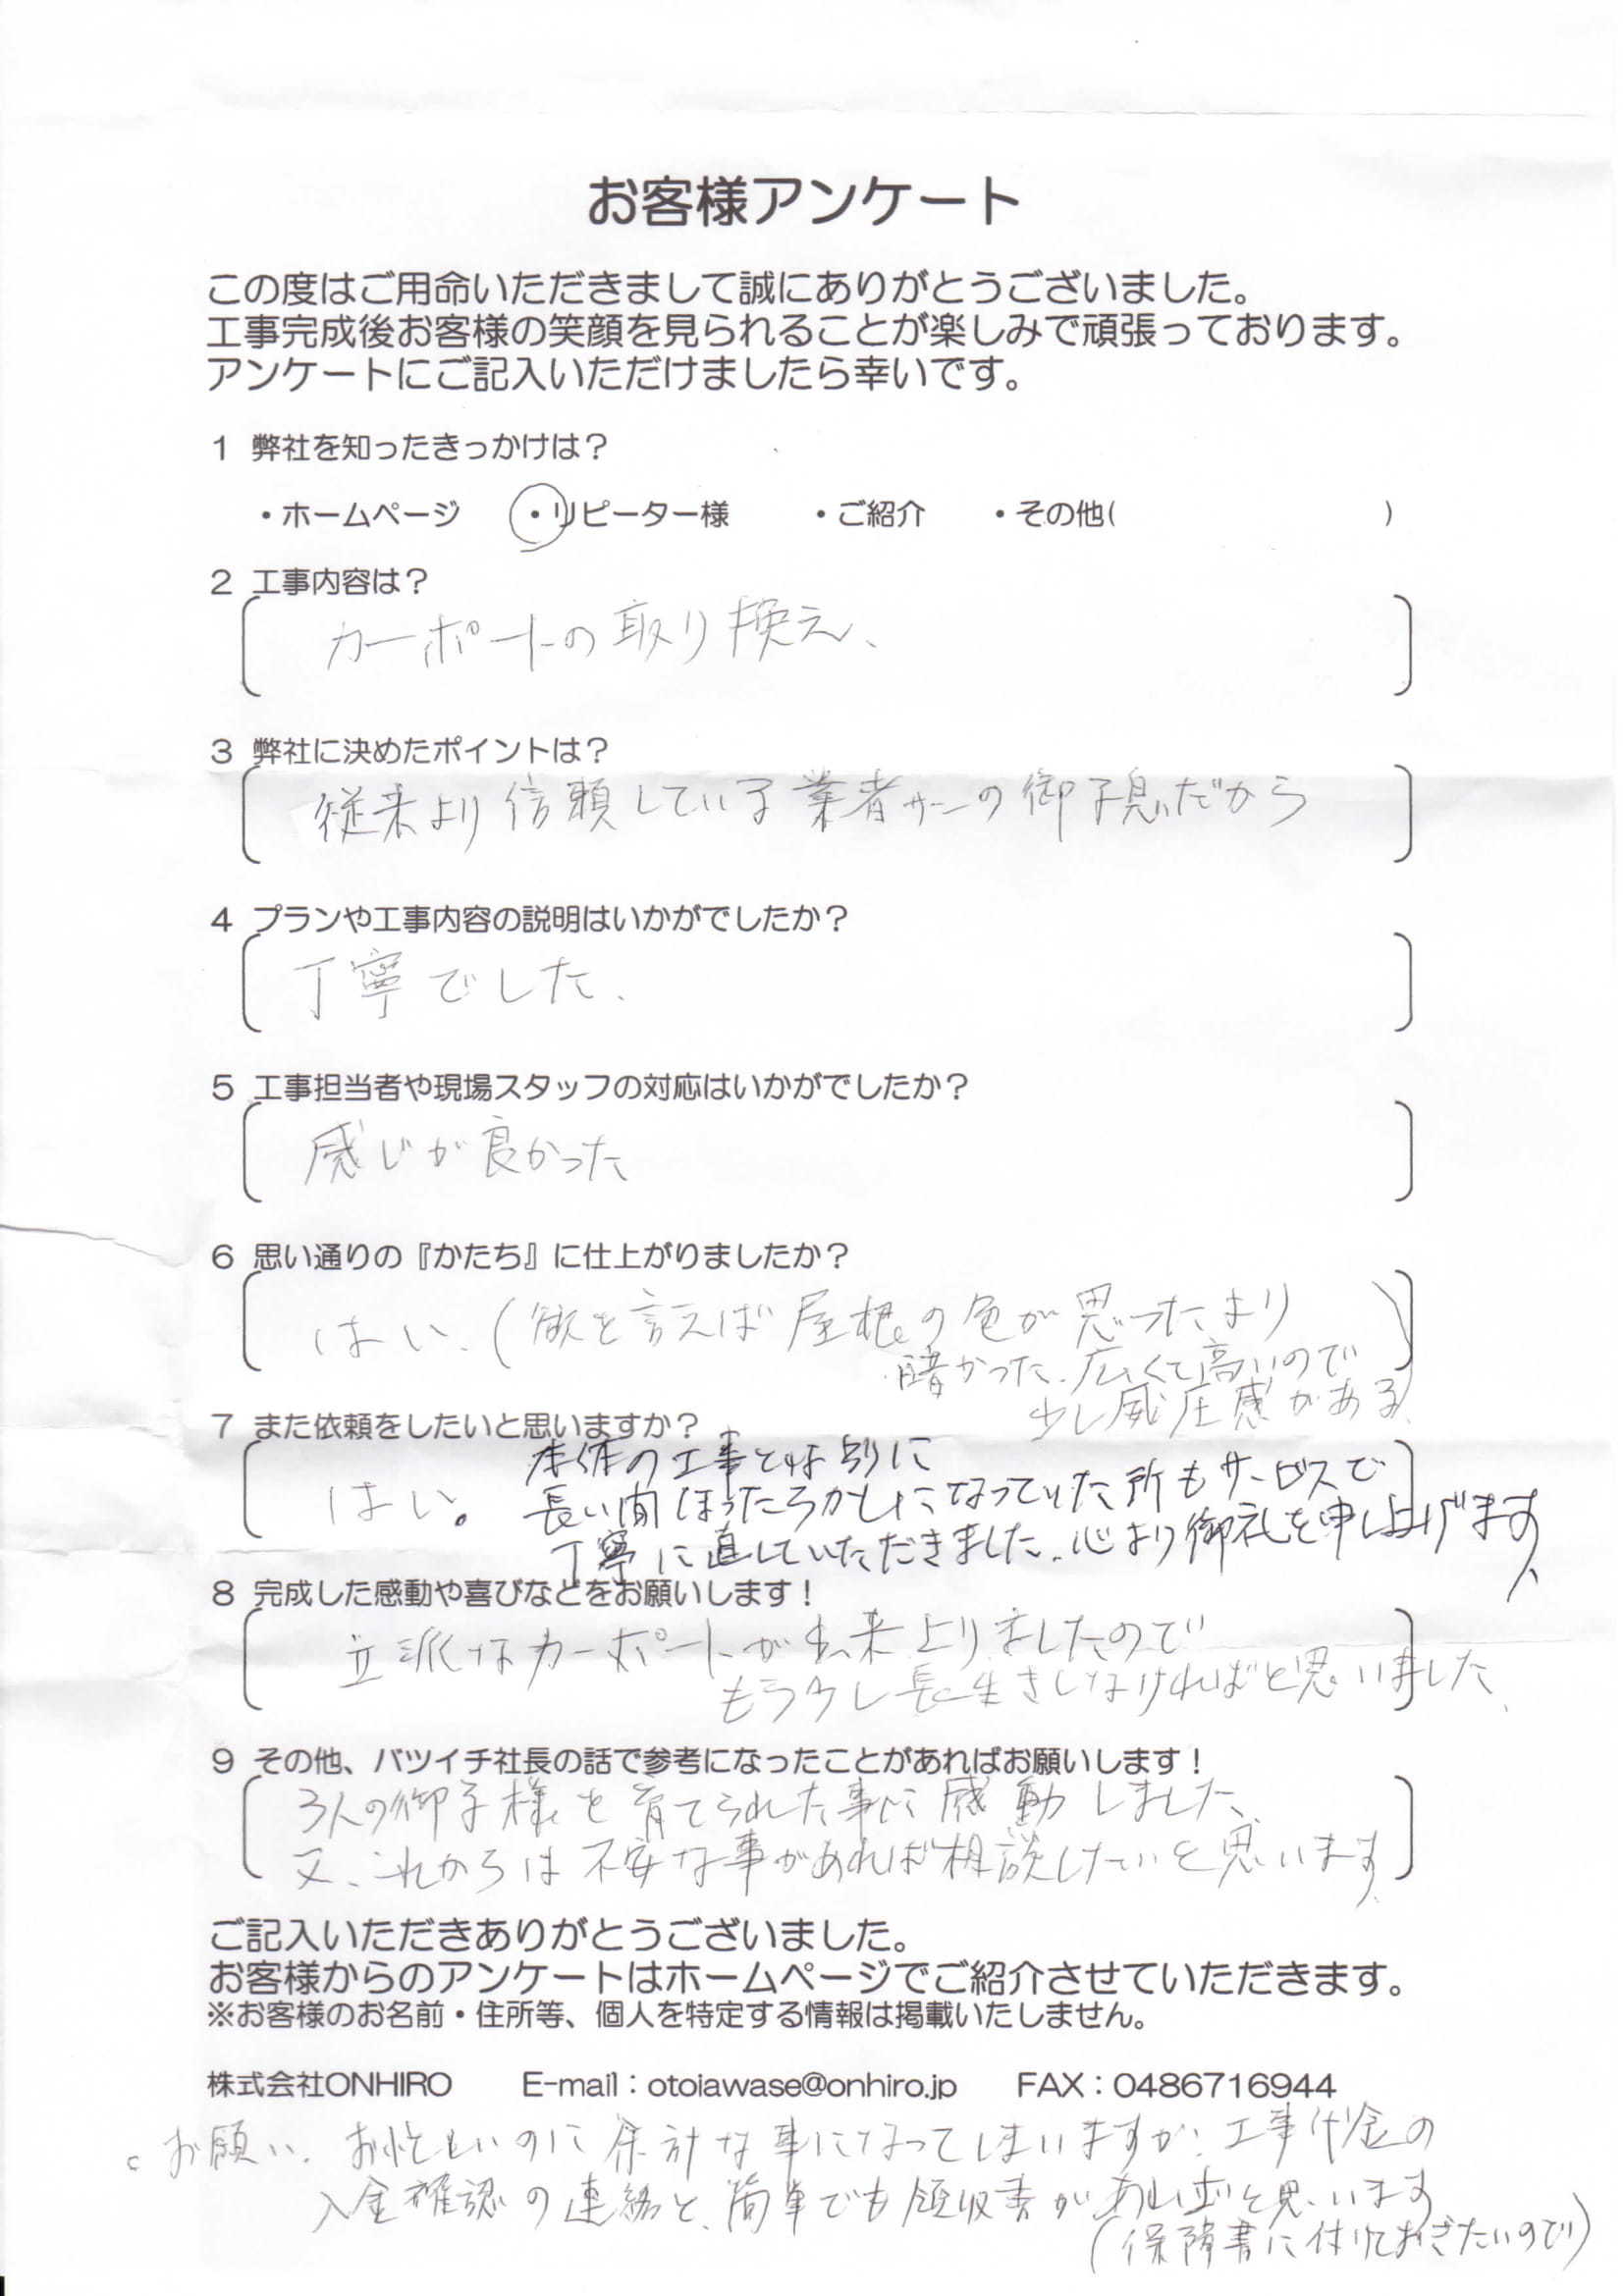 お客様アンケート
この度はご用命いただきまして誠にありがとうございました。
工事完成後お客様の笑顔を見られることが楽しみで頑張っております。
アンケートにご記入いただけましたら幸いです。
1 弊社を知ったきっかけは？
・ホームページ ・リピーター様 ・ご紹介 ・その他( )
2 工事内容は？
カーポートの取り換え、
3 弊社に決めたポイントは？
従来より信頼している業者サンの御子息だから
4 プランや工事内容の説明はいかがでしたか？
丁寧でした、
5 工事担当者や現場スタッフの対応はいかがでしたか？
感じが良かった
6 思い通りの『かたち』に仕上がりましたか？
はい、(欲を言えば屋根の色が思ったより
暗かった、広くて高いので
少し威圧感がある)
7 また依頼をしたいと思いますか？
本体の工事とは別に
はい。 長い間ほったらかしになっていた所もサービスで
丁寧に直していただきました、心より御礼を申し上げます、
8 完成した感動や喜びなどをお願いします！
立派なカーポートが出来上りましたので
もう少し長生きしなければと思いました、
9 その他、バツイチ社長の話で参考になったことがあればお願いします！
3人の御子様を育てられた事に感動しました、
又、これからは不安な事があれば相談したいと思います、
ご記入いただきありがとうございました。
お客様からのアンケートはホームページでご紹介させていただきます。
※お客様のお名前・住所等、個人を特定する情報は掲載いたしません。
株式会社ONHIRO E-mail：otoiawase@onhiro.jp FAX：0486716944
。お願い、お忙しいのに余計な事になってしまいますが、工事代金の
入金確認の連絡と、簡単でも領収書があればと思います
(保障書に付けておきたいので)